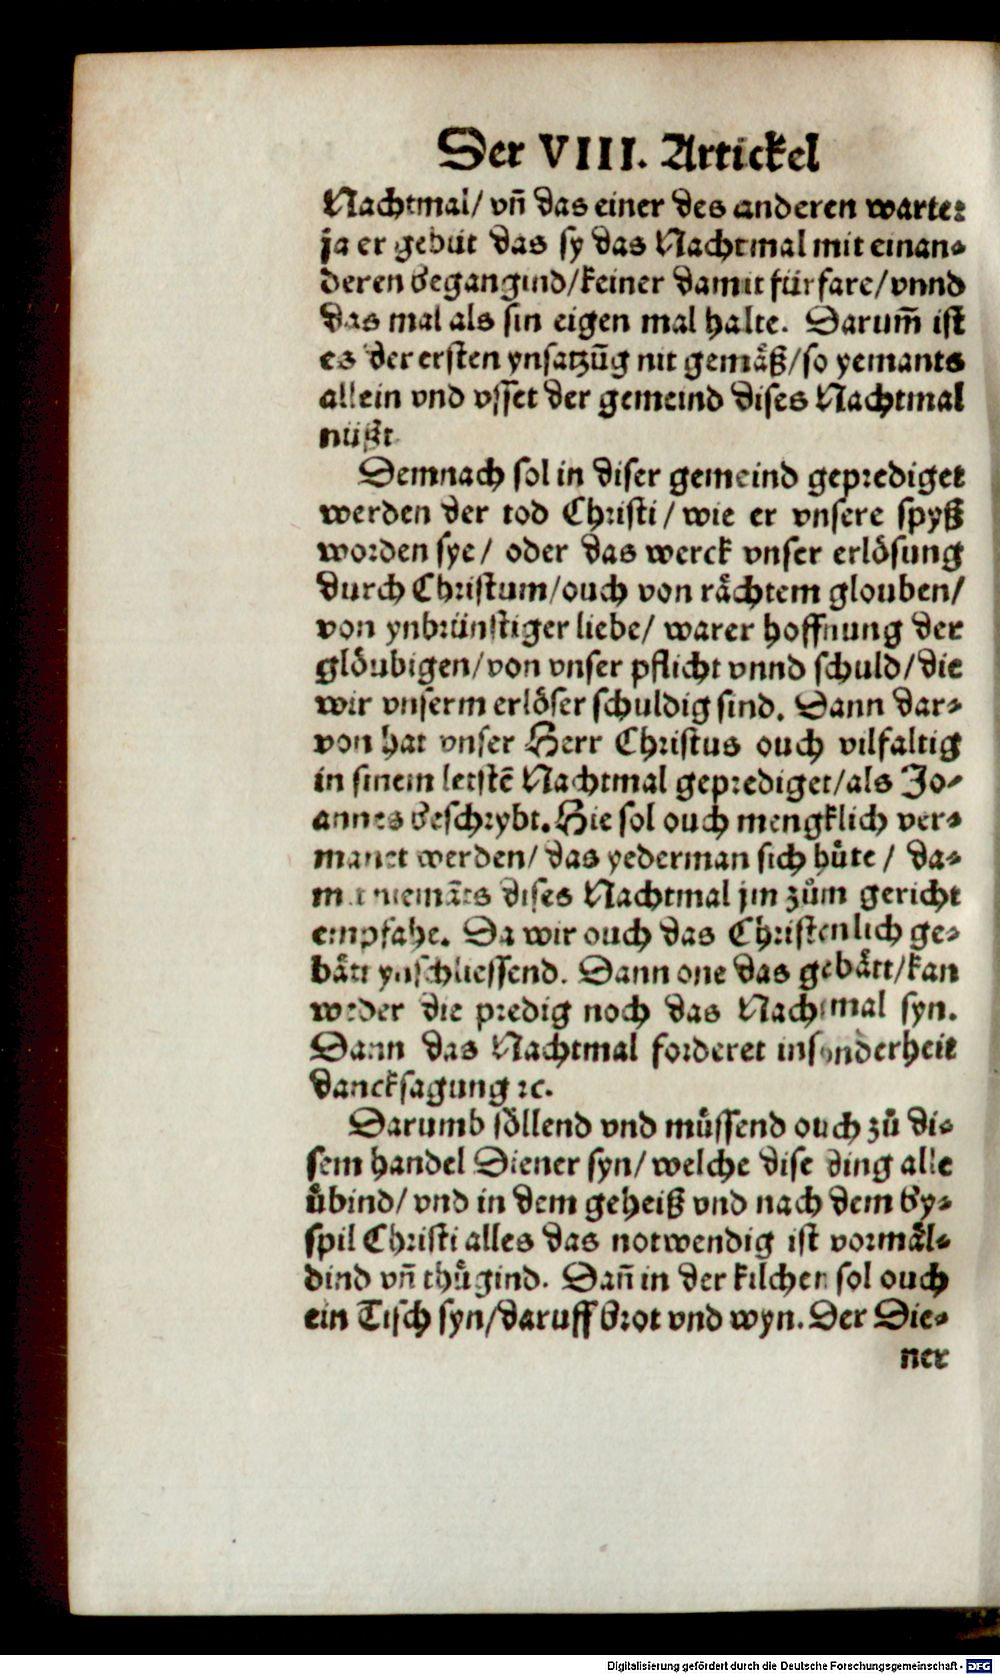 Der VIII. Artickel
Nachtmal/ vn̄ das einer des anderen warte:
ja er gebüt das sy das Nachtmal mit einan⸗
deren begangind/keiner damit fürfare/vnnd
das mal als sin eigen mal halte. Darum̄ ist
es der ersten ynsatzūg nit gemäß/so yemants
allein vnd vsset der gemeind dises Nachtmal
nüßt
Demnach sol in diser gemeind geprediget
werden der tod Christi/ wie er vnsere spyß
worden sye/ oder das werck vnser erlösung
durch Christum/ouch von rächtem glouben/
von ynbrünstiger liebe/ warer hoffnung der
glöubigen/von vnser pflicht vnnd schuld/die
wir vnserm erlöser schuldig sind. Dann dar⸗
von hat vnser Herr Christus ouch vilfaltig
in sinem letstē Nachtmal geprediget/als Jo⸗
annes beschrybt. Hie sol ouch mengklich ver⸗
manet werden/ das yederman sich hůte/ da⸗
mit niemāts dises Nachtmal jm zům gericht
empfahe. Da wir ouch das Christenlich ge⸗
bätt ynschliessend. Dann one das gebätt/kan
weder die predig noch das Nachtmal syn.
Dann das Nachtmal forderet insonderheit
dancksagung ꝛc.
Darumb söllend vnd müssend ouch zů di⸗
sem handel Diener syn/ welche dise ding alle
übind/ vnd in dem geheiß vnd nach dem by⸗
spil Christi alles das notwendig ist vormäl⸗
dind vn̄ thůgind. Dan̄ in der kilchen sol ouch
ein Tisch syn/daruff brot vnd wyn. Der Die⸗
ner
Digitalisierung gefördert durch die Deutsche Forschungsgemeinschaft - DFG